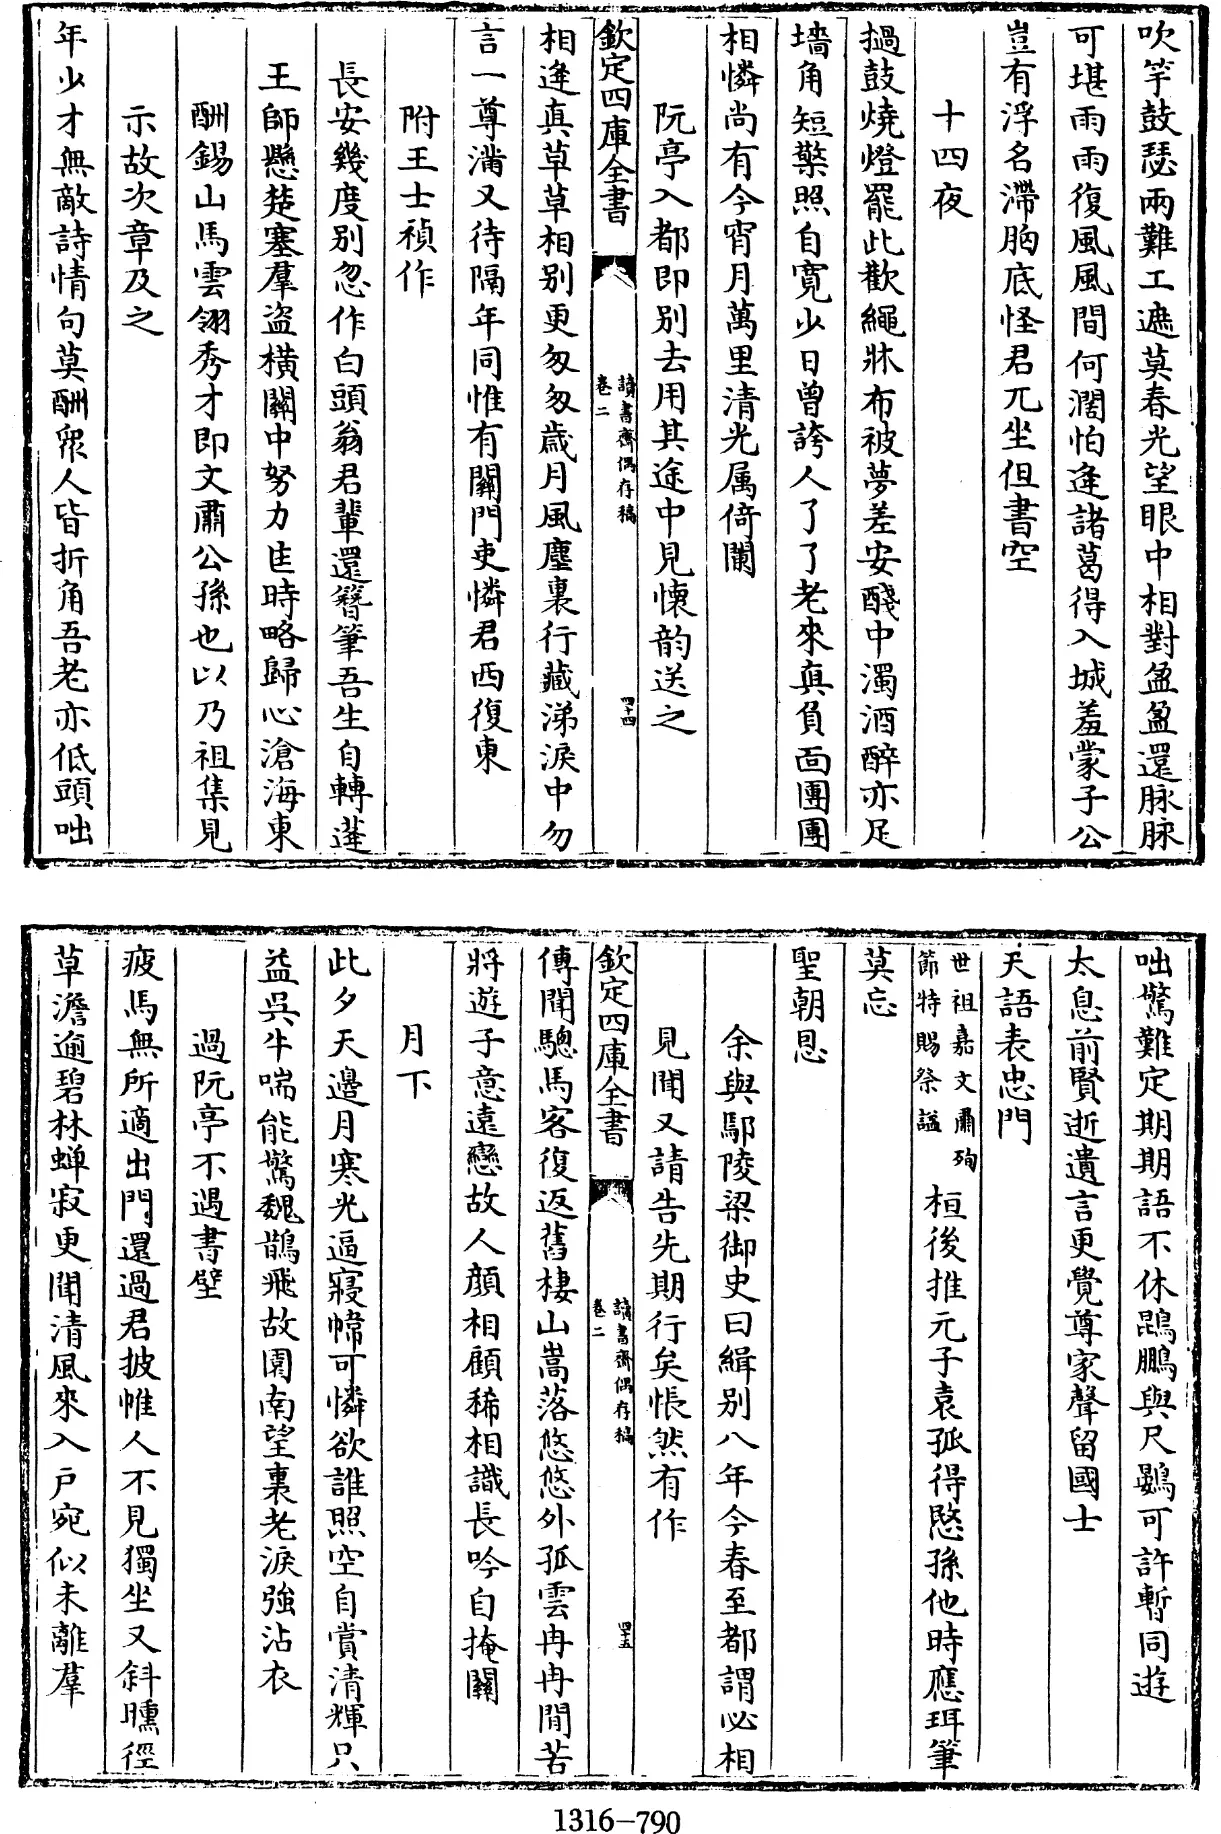 吹竽鼓瑟兩難工遮莫春光望眼中相對盈盈還脉脉
可堪雨雨復風風間何濶怕逢諸葛得入城羞蒙子公
豈有浮名滯胸底怪君兀坐但書空
十四夜
撾鼓燒燈罷此歡繩牀布被夢差安醆中濁酒醉亦足
墻角短檠照自寛少日曾誇人了了老來真負面團團
相憐尚有今宵月萬里清光属倚闌
阮亭入都即别去用其途中見懐韵送之
欽定四庫全書
讀書齋偶存稿
卷二
四十四
相逢真草草相别更匆匆歳月風塵裏行藏涕淚中勿
言一尊滿又待隔年同惟有關門吏憐君西復東
附王士禎作
長安幾度别忽作白頭翁君輩還簪筆吾生自轉蓬
王師懸楚塞羣盜横關中努力匡時略歸心滄海東
酬錫山馬雲翎秀才即文肅公孫也以乃祖集見
示故次章及之
年少才無敵詩情句莫酬衆人皆折角吾老亦低頭咄
咄驚難定期期語不休鵾鵬與尺鷃可許暫同遊
太息前賢逝遺言更覺尊家聲留國士
天語表忠門
世祖嘉文肅殉
節特賜祭謚
桓後推元子袁孤得愍孫他時應珥筆
莫忘
聖朝恩
余與鄢陵梁御史曰緝别八年今春至都謂必相
見聞又請告先期行矣悵然有作
欽定四庫全書
讀書齋偶存稿
卷二
四十五
傳聞驄馬客復返舊棲山嵩落悠悠外孤雲冉冉間苦
將遊子意遠戀故人顔相顧稀相識長吟自掩關
月下
此夕天邊月寒光逼寢幃可憐欲誰照空自賞清輝只
益吳牛喘能驚魏鵲飛故園南望裏老淚強沾衣
過阮亭不遇書壁
疲馬無所適出門還過君披帷人不見獨坐又斜曛徑
草澹逾碧林蟬寂更聞清風來入戸宛似未離羣
1316-790